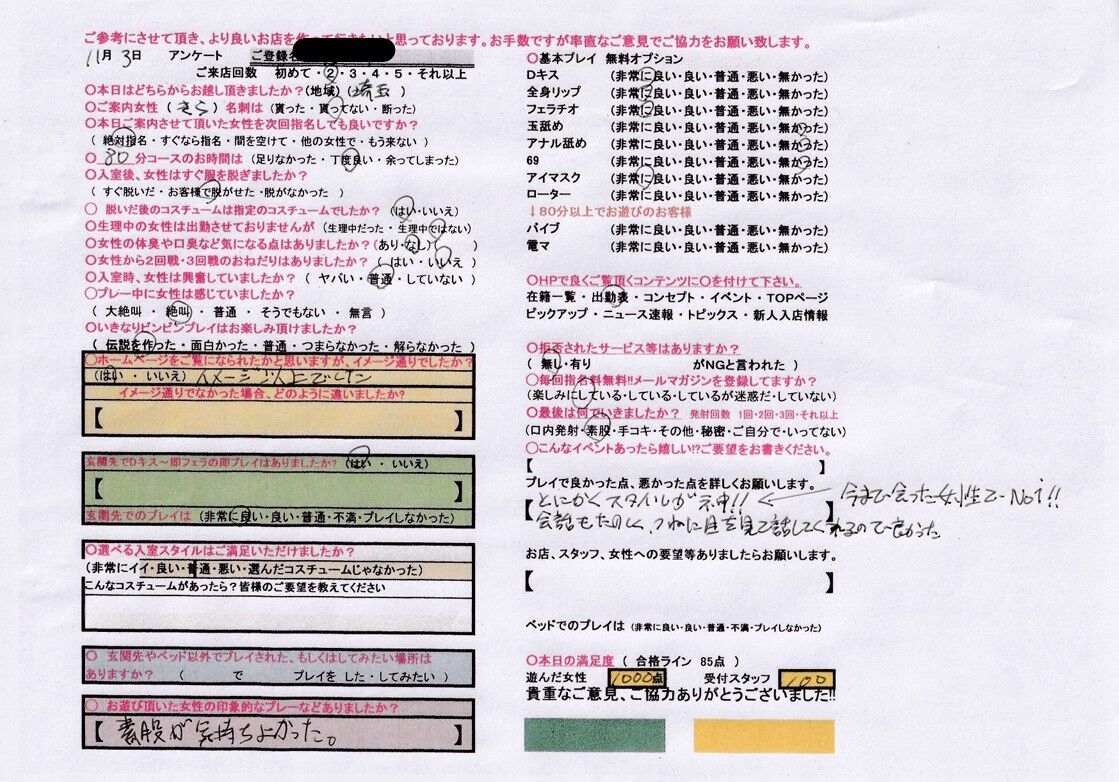 ご参考にさせて頂き、より良いお店を作って行きたいと思っております。お手数ですが率直なご意見でご協力をお願い致します。
11月 3日 アンケート ご登録名
ご来店回数 初めて・2・3・4・5・それ以上
〇本日はどちらからお越し頂きましたか?(地域) (埼玉)
〇ご案内女性 ( さら ) 名刺は (貰った・貰ってない・断った)
〇本日ご案内させて頂いた女性を次回指名しても良いですか?
( 絶対指名・すぐなら指名・間を空けて・他の女性で・もう来ない )
〇 80 分コースのお時間は (足りなかった・丁度良い・余ってしまった)
〇入室後、女性はすぐ服を脱ぎましたか?
( すぐ脱いだ・お客様で脱がせた・脱がなかった )
〇 脱いだ後のコスチュームは指定のコスチュームでしたか? (はい・いいえ)
〇生理中の女性は出勤させておりませんが (生理中だった・生理中ではない)
〇女性の体臭や口臭など気になる点はありましたか?(あり・なし)( )
〇女性から2回戦・3回戦のおねだりはありましたか? ( はい・いいえ )
〇入室時、女性は興奮していましたか? ( ヤバい・普通・していない )
〇プレー中に女性は感じていましたか?
( 大絶叫 ・ 絶叫 ・ 普通 ・ そうでもない ・ 無言 )
〇いきなりビンビンプレイはお楽しみ頂けましたか?
( 伝説を作った・面白かった・普通・つまらなかった・解らなかった )
〇ホームページをご覧になられたかと思いますが、イメージ通りでしたか?
(はい ・ いいえ) イメージ以上でした
イメージ通りでなかった場合、どのように違いましたか?
【 】
玄関先でDキス～即フェラの即プレイはありましたか? (はい ・ いいえ)
【 】
玄関先でのプレイは (非常に良い・良い・普通・不満・プレイしなかった)
〇選べる入室スタイルはご満足いただけましたか?
(非常にイイ・良い・普通・悪い・選んだコスチュームじゃなかった)
こんなコスチュームがあったら?皆様のご要望を教えてください
〇 玄関先やベッド以外でプレイされた、もしくはしてみたい場所は
ありますか? ( で プレイを した・してみたい )
〇 お遊び頂いた女性の印象的なプレーなどありましたか?
【 素股が気持ちよかった。 】
〇基本プレイ 無料オプション
Dキス (非常に良い・良い・普通・悪い・無かった)
全身リップ (非常に良い・良い・普通・悪い・無かった)
フェラチオ (非常に良い・良い・普通・悪い・無かった)
玉舐め (非常に良い・良い・普通・悪い・無かった)
アナル舐め (非常に良い・良い・普通・悪い・無かった)
69 (非常に良い・良い・普通・悪い・無かった)
アイマスク (非常に良い・良い・普通・悪い・無かった)
ローター (非常に良い・良い・普通・悪い・無かった)
↓80分以上でお遊びのお客様
バイブ (非常に良い・良い・普通・悪い・無かった)
電マ (非常に良い・良い・普通・悪い・無かった)
〇HPで良くご覧頂くコンテンツに〇を付けて下さい。
在籍一覧・出勤表・コンセプト・イベント・TOPページ
ピックアップ・ニュース速報・トピックス・新人入店情報
〇拒否されたサービス等はありますか?
( 無し・有り がNGと言われた )
〇毎回指名料無料!!メールマガジンを登録してますか?
(楽しみにしている・している・しているが迷惑だ・していない)
〇最後は何でいきましたか? 発射回数 1回・2回・3回・それ以上
(口内発射・素股・手コキ・その他・秘密・ご自分で・いってない)
〇こんなイベントあったら嬉しい!?ご要望をお書きください。
【 】
プレイで良かった点、悪かった点を詳しくお願いします。
【 とにかくスタイルが神!! ← 今まで会った女性で No1!!
会話もたのしく、つねに目を見て話してくれるので良かった 】
お店、スタッフ、女性への要望等ありましたらお願いします。
【 】
ベッドでのプレイは (非常に良い・良い・普通・不満・プレイしなかった)
〇本日の満足度 ( 合格ライン 85点 )
遊んだ女性 1000点 受付スタッフ 100
貴重なご意見、ご協力ありがとうございました!!